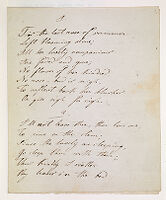 1
'Tis the last rose of summer
Left blooming alone,
All her lovely companions
Are faded and gone,
No flower of her kindred
No rose-bud is nigh
To reflect back her blushes
Or give sigh for sigh.
2
I'll not leave thee, thou lone one
To pine on the stem;
Since the lovely are sleeping,
Go sleep thou with them;
Thus kindly I scatter
Thy leaves o'er the bed